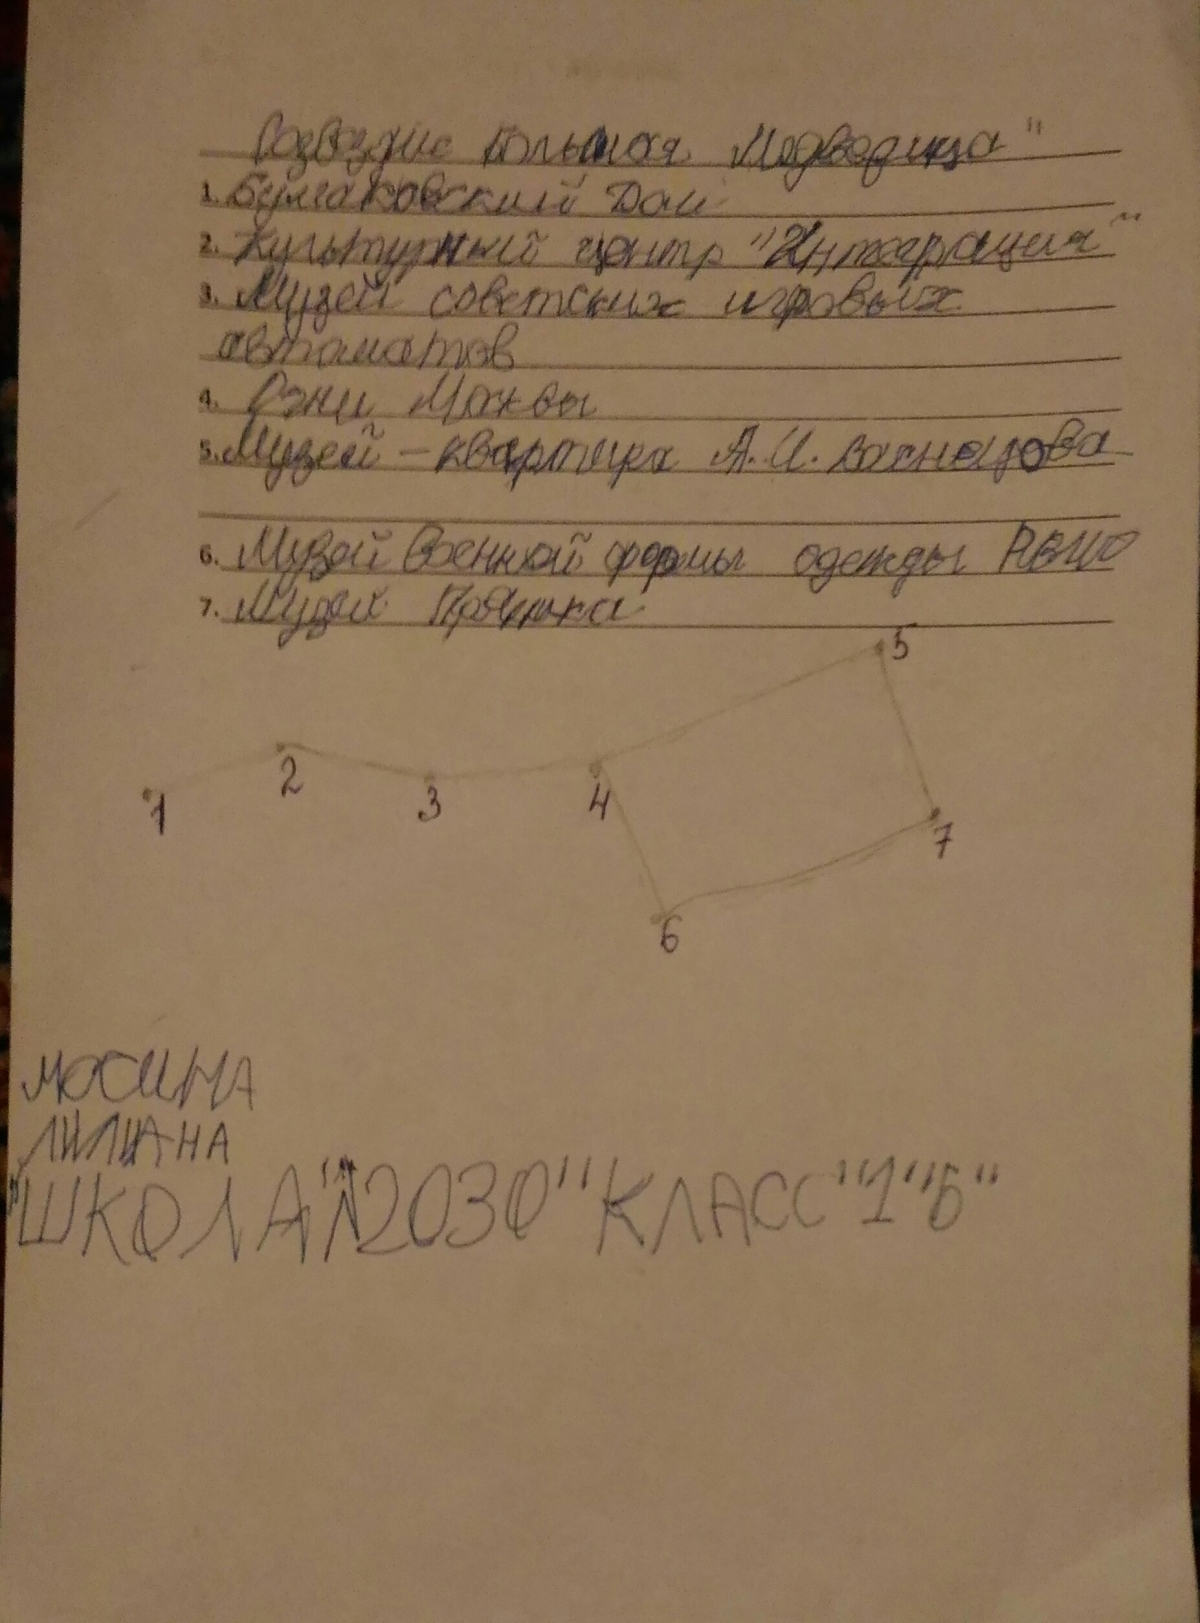 Созвездие Большая Медведица"
1. Булгаковский Дом
2. Культурный центр "Интеграция"
3. Музей советских игровых
автоматов
4. Огни Москвы
5. Музей – квартира А.И. Васнецова
6. Музей Военной формы одежды РВИО
7. Музей Пряника
5
2
1
3
4
7
6
МОСИНА
ЛИЛИАНА
"ШКОЛА"№2030" КЛАСС"1"Б"